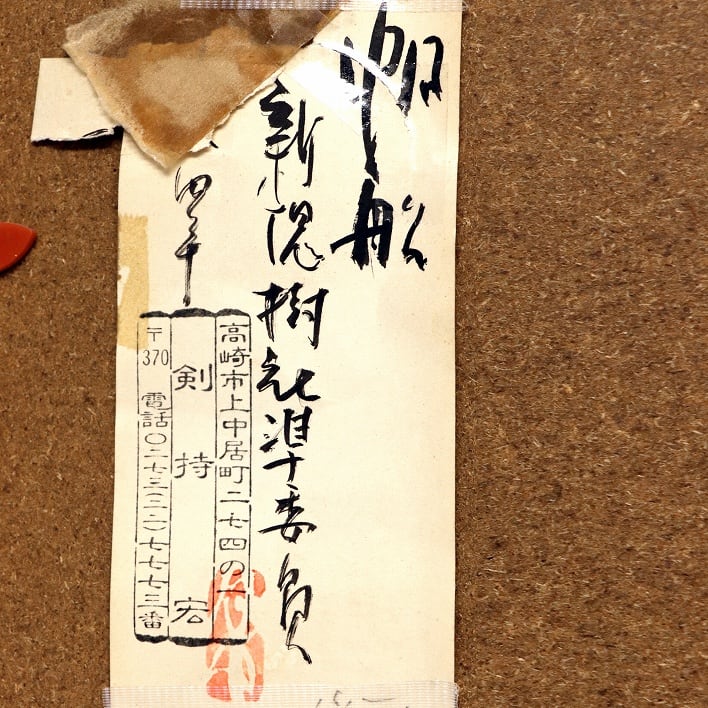 帆と船
新槻樹社準委員
四十
高崎市上中居町二七四の一
剣持 宏
〒370 電話〇二七三(二二)七七七三番